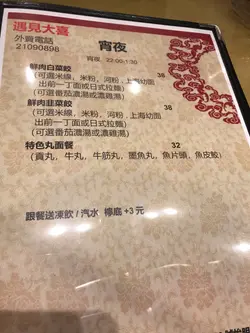 遇見大喜
外賣電話
21090898
宵夜
宵夜 22:00-1:30
鮮肉白菜餃 38
(可選米線，米粉，河粉，上海幼面
出前一丁面或日式拉麵)
(可選番茄濃湯或濃雞湯)
鮮肉韭菜餃 38
(可選米線，米粉，河粉，上海幼面
出前一丁面或日式拉麵)
(可選番茄濃湯或濃雞湯)
特色丸面餐 32
(貢丸，牛丸，牛筋丸，墨魚丸，魚片頭，魚皮餃)
跟餐送凍飲/汽水 樽底 +3 元